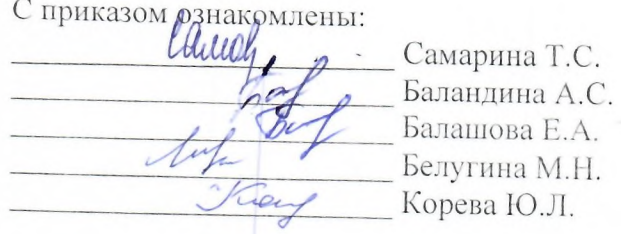 С приказом ознакомлены:
Самарина Т.С.
Баландина А.С.
Балашова Е.А.
Белугина М.Н.
Корева Ю.Л.